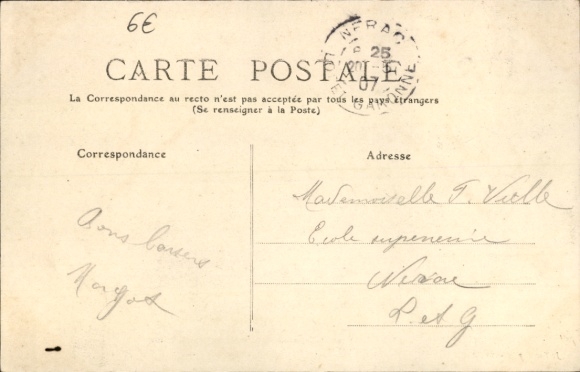 6€
NERAC
25
07
LOT ET GARONNE
CARTE POSTALE
La Correspondance au recto n'est pas acceptée par tous les pays étrangers
(Se renseigner à la Poste)
Correspondance
Adresse
Mademoiselle
Ecole superieure
Nerac
L et G
Bons baisers
Margot